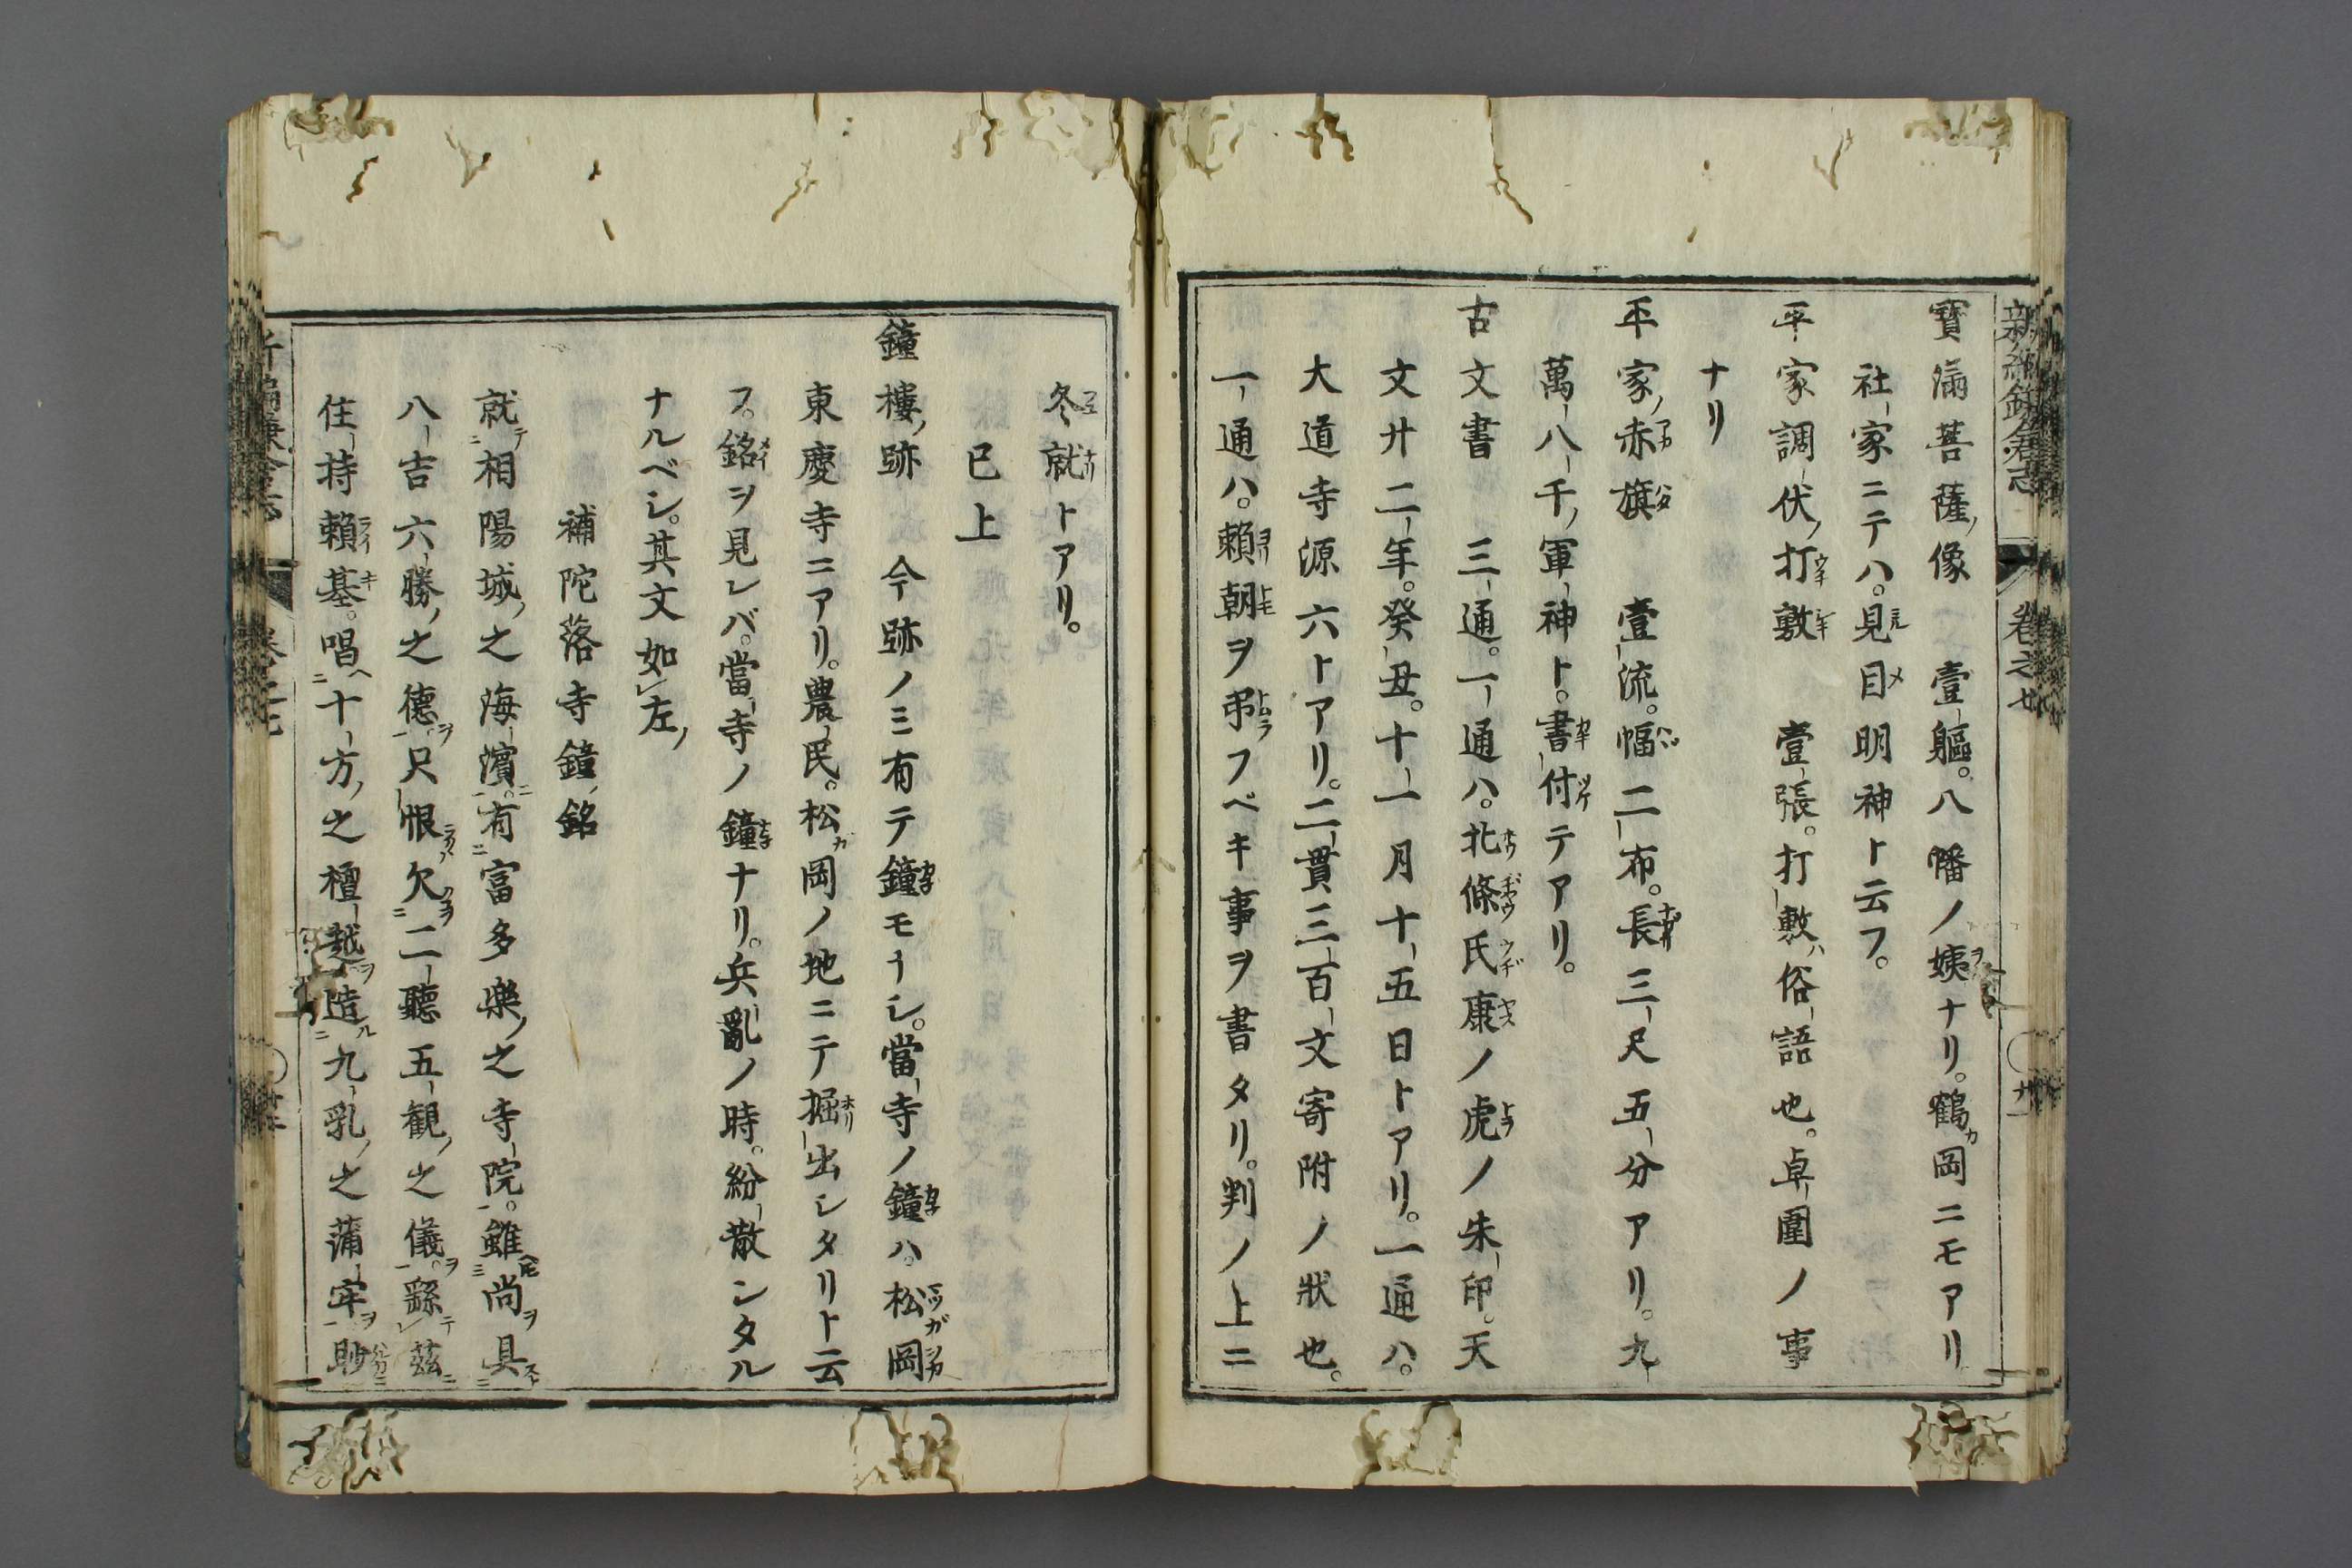 新編鎌倉志 卷之七
寶滿菩薩像 壹軀。八幡ノ姨ヲナリ。鶴カ岡ニモアリ
社家ニテハ。見目明神ト云フ。
平家調伏打敷 壹張。打敷ハ俗語也。卓圍ノ事
ナリ
平家赤旗 壹流。幅二布。長三尺五分アリ。九
萬八千軍神ト。書付テアリ。
古文書 三通。一通ハ。北條氏康ノ虎ノ朱印。天
文廿二年。癸丑。十一月十五日トアリ。一通ハ。
大道寺源六トアリ。二貫三百文寄附ノ狀也。
一通ハ。賴朝ヲ弔フベキ事ヲ書タリ。判ノ上ニ
冬就トアリ。
已上
鐘樓跡 今跡ノミ有テ鐘モナシ。當寺ノ鐘ハ。松岡
東慶寺ニアリ。農民。松カ岡ノ地ニテ掘出シタリト云
フ。銘ヲ見レバ。當寺ノ鐘ナリ。兵亂ノ時。紛散シタル
ナルベシ。其文如左
補陀落寺鐘銘
就相陽城之海濱。有富多樂之寺院。雖尚具
八吉六勝之德。只恨欠二聽五觀之儀。繇茲
住持賴基。唱十方之檀越造九乳之蒲牢